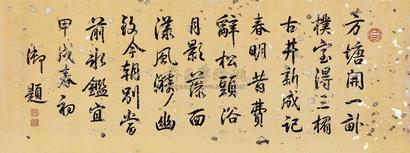 方塘開一畝
樸室得三楣
古井新成記
春明昔費
辭松頭浴
月影藻面
漾風漪幽
致今朝別當
前氷鑑宜
甲戌春初
御題